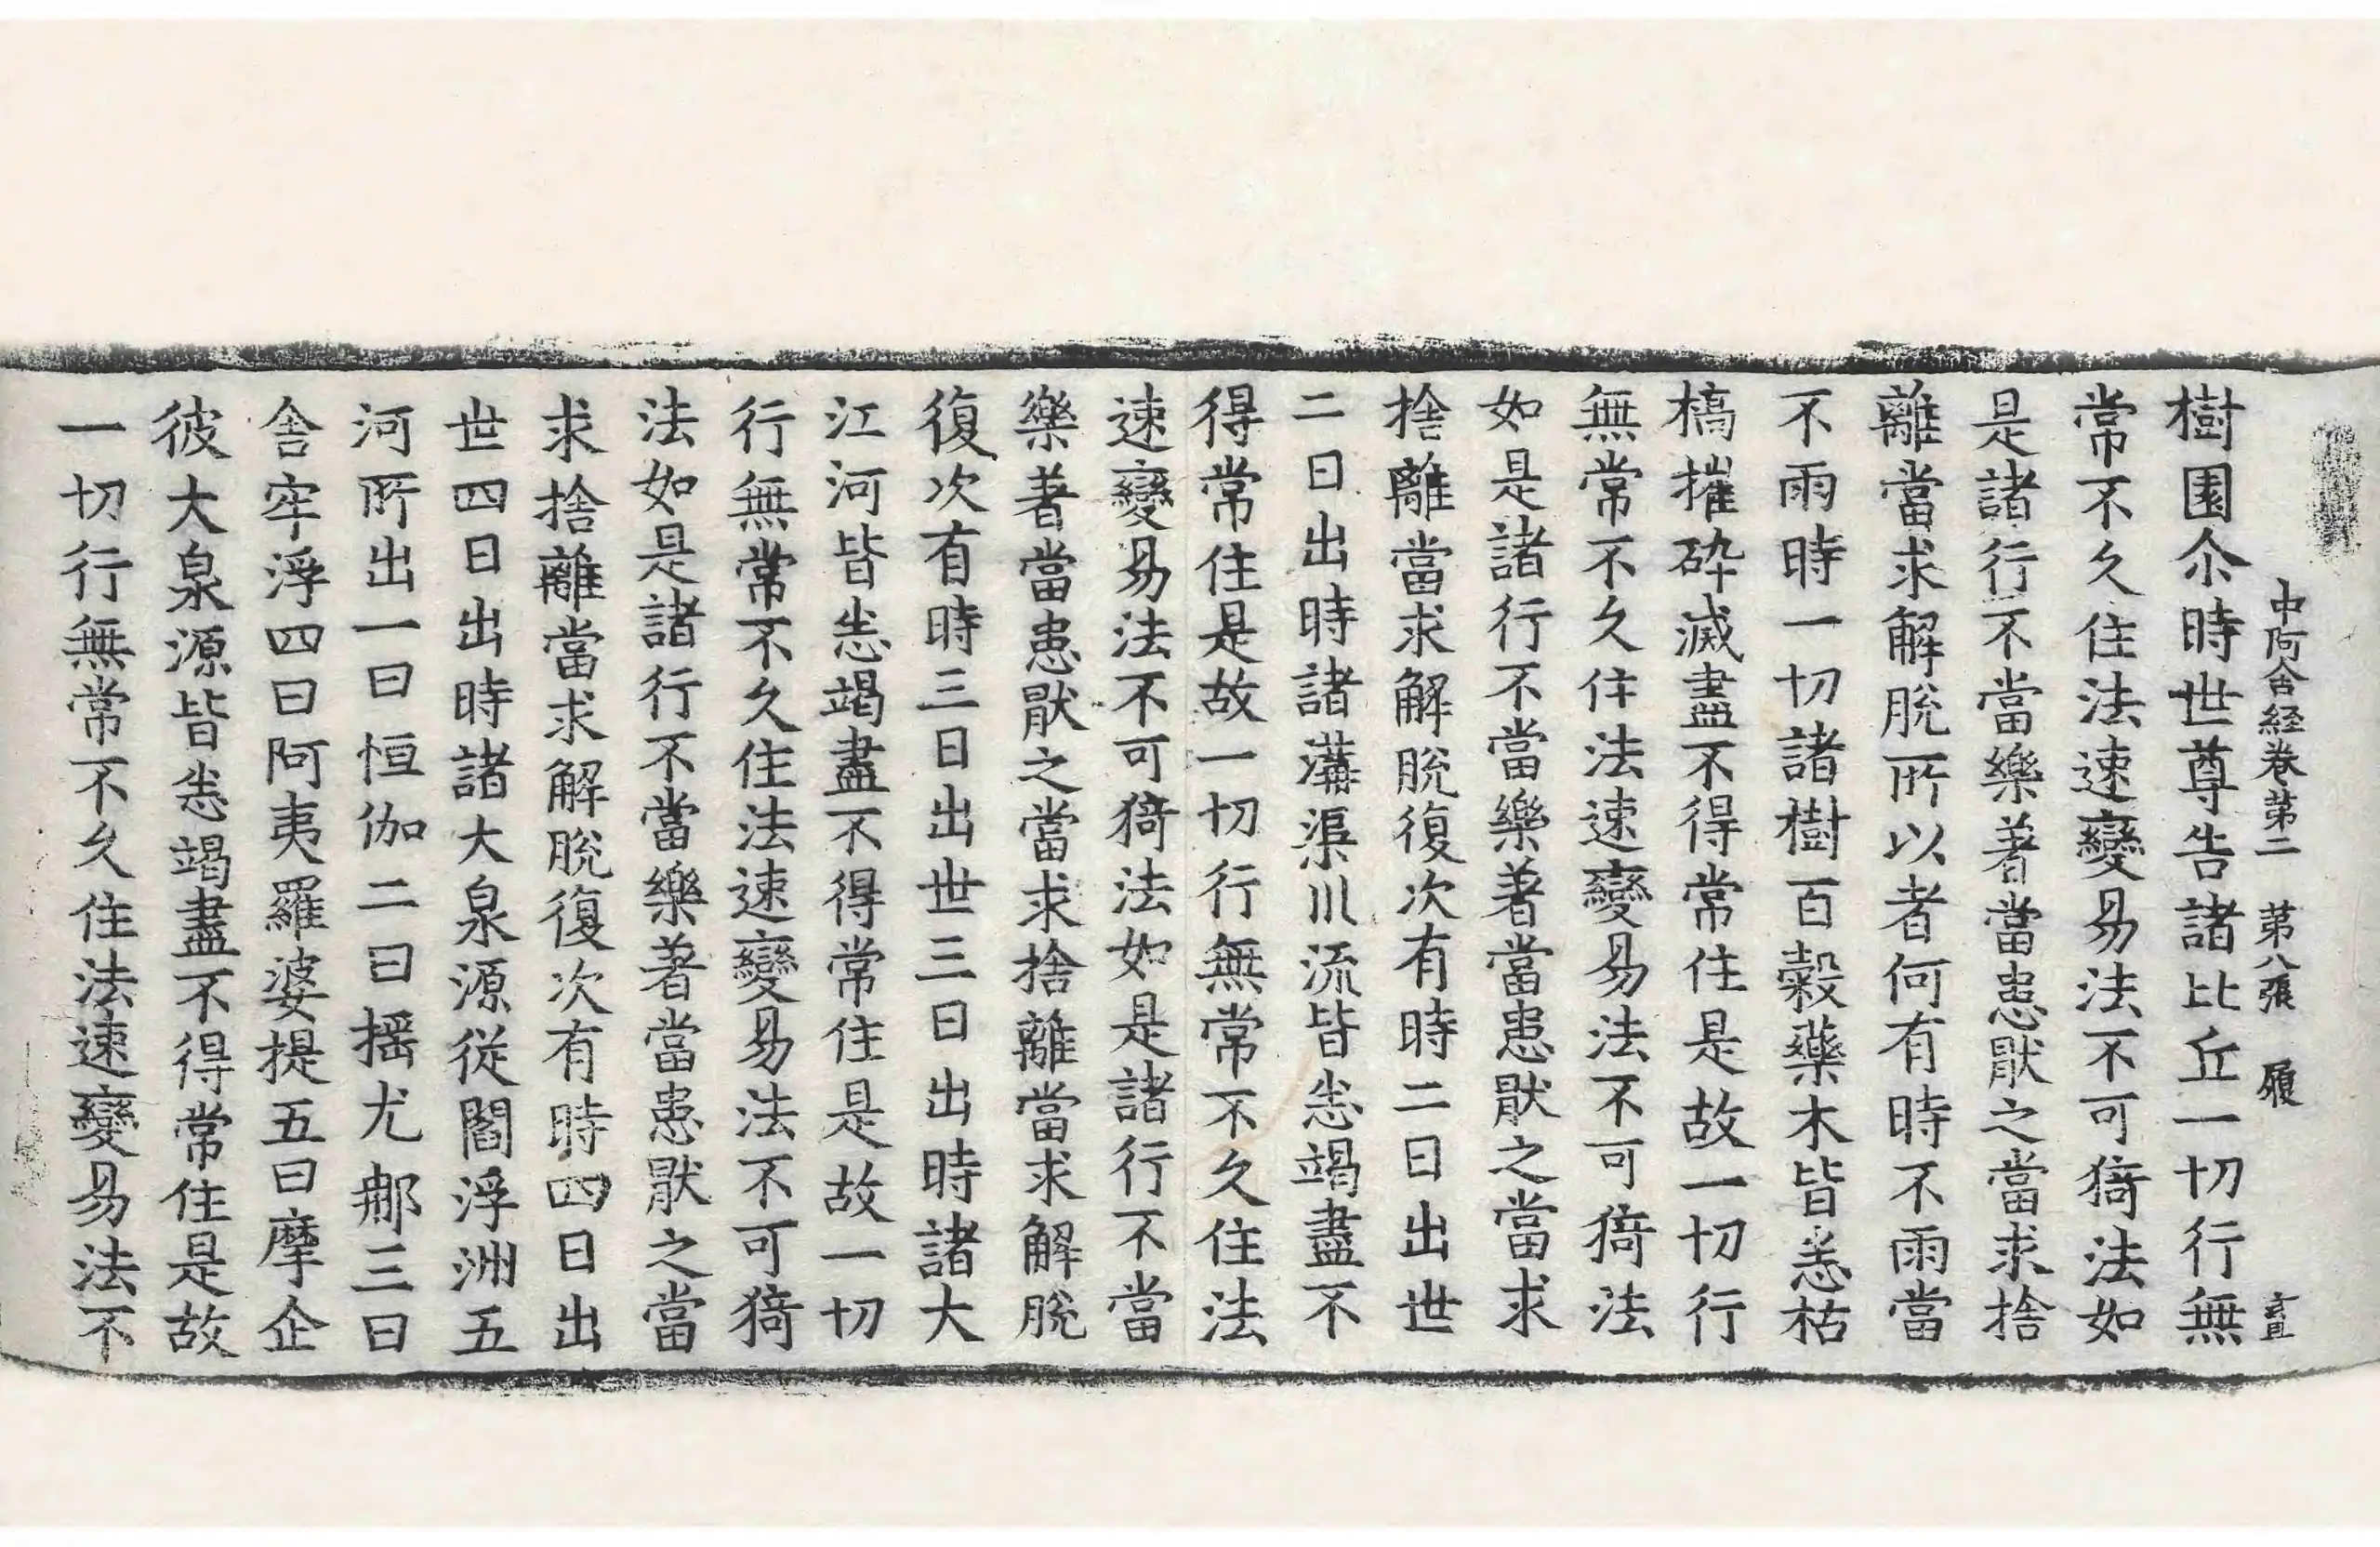 中阿含経卷第二　第八張　履
樹園尒時世尊告諸比丘一切行無
常不久住法速變易法不可猗法如
是諸行不當樂著當患猒之當求捨
離當求解脫所以者何有時不雨當
不雨時一切諸樹百穀藥木皆悉枯
槁摧碎滅盡不得常住是故一切行
無常不久住法速變易法不可猗法
如是諸行不當樂著當患猒之當求
捨離當求解脫復次有時二日出世
二日出時諸溝渠川流皆悉竭盡不
得常住是故一切行無常不久住法
速變易法不可猗法如是諸行不當
樂著當患猒之當求捨離當求解脫
復次有時三日出世三日出時諸大
江河皆悉竭盡不得常住是故一切
行無常不久住法速變易法不可猗
法如是諸行不當樂著當患猒之當
求捨離當求解脫復次有時四日出
世四日出時諸大泉源從閻浮洲五
河所出一曰恒伽二曰搖尤那三曰
舍牢浮四曰阿夷羅婆提五曰摩企
彼大泉源皆悉竭盡不得常住是故
一切行無常不久住法速變易法不